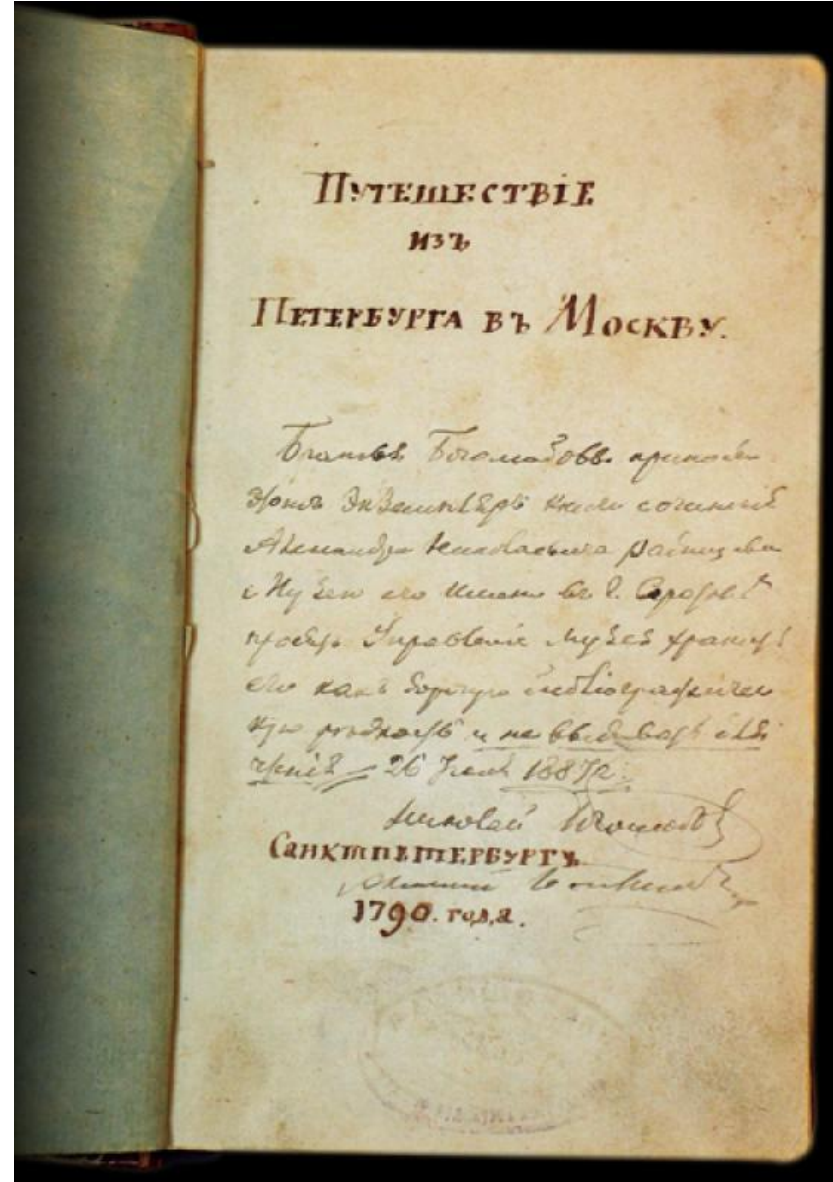 Путешествіе
изъ
Петербурга въ Москву.
Братья Боголюбовы приносЯ
этотъ Экземпляръ книги сочиненій
Александра Николаевича Радищева
Музею его имени въ г. Саратовѣ
просятъ Управленіе музея хранить
его какъ библіографичес
кую рѣдкость и не выдавать для
чтенія 26 1887г.
Николай Боголюбовъ
Санктпетербургъ
Алексѣй Боголюбовъ
1790. года.